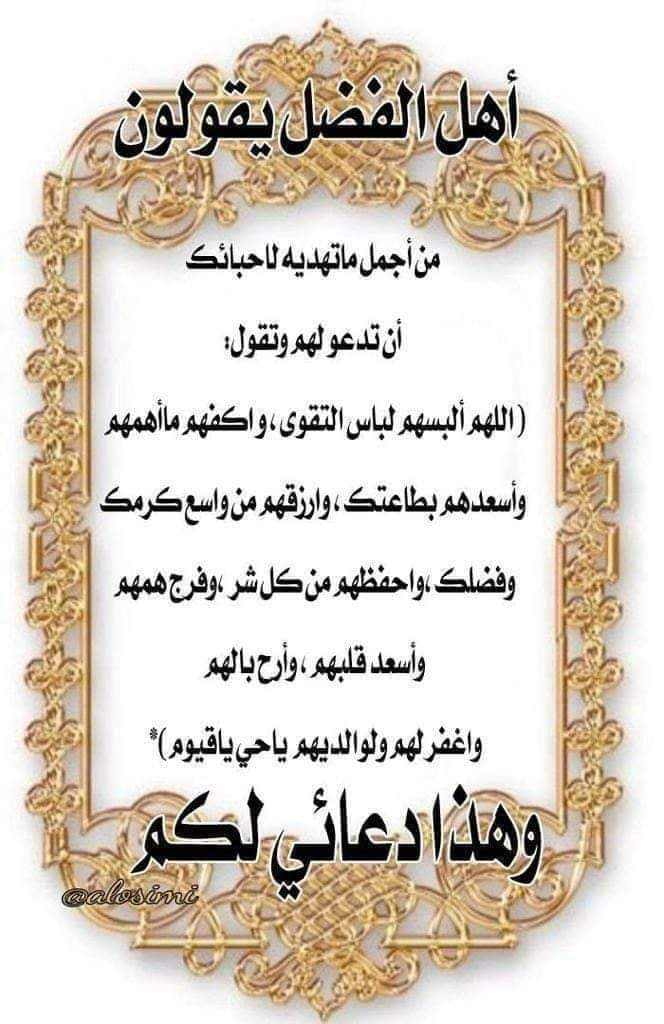 أهل الفضل يقولون
من أجمل ماتهديه لاحبائك
أن تدعو لهم وتقول:
( اللهم ألبسهم لباس التقوى ، و اكفهم ماأهمهم
وأسعدهم بطاعتك ، وارزقهم من واسع كرمك
وفضلك ،واحفظهم من كل شر ،وفرج همهم
وأسعد قلبهم ، وأرح بالهم
واغفر لهم ولوالديهم ياحي ياقيوم )*
وهذا دعائي لكم
@alosimi